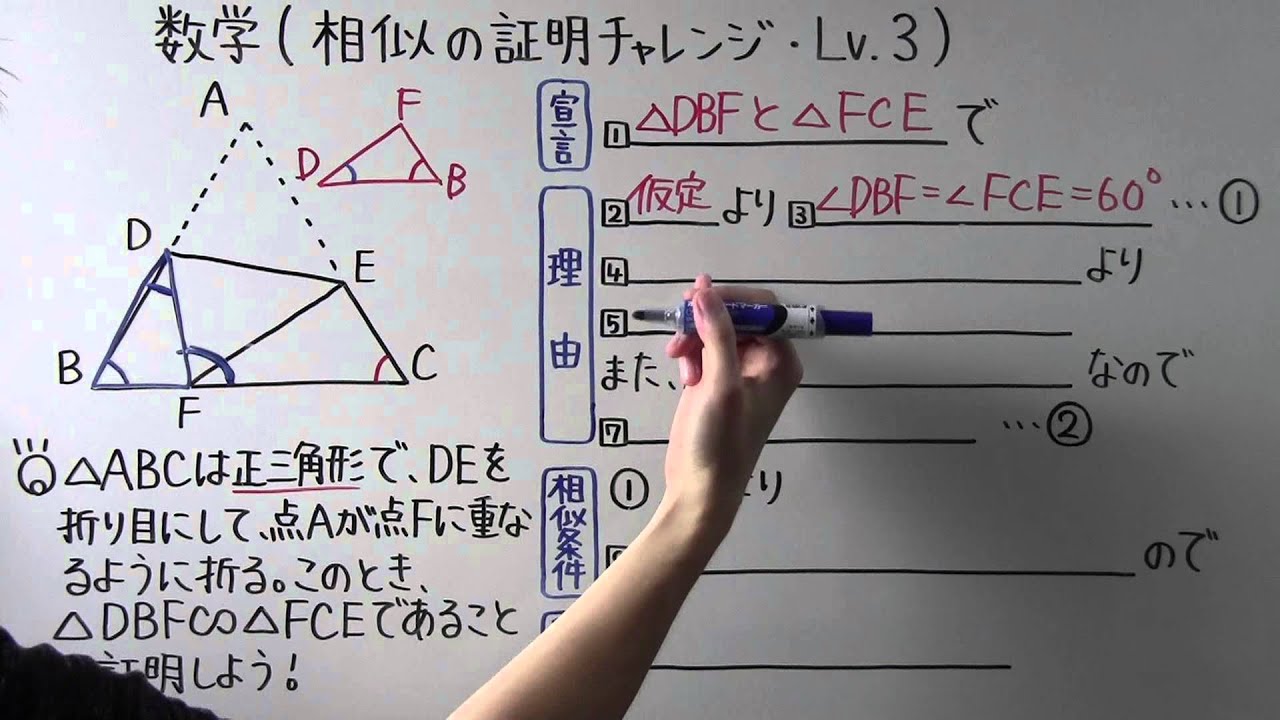 数学(相似の証明チャレンジ・Lv.3)
A
F
D
B
D
E
B
F
C
宣言
1 △DBFと△FCE で
理由
2 仮定 より 3 ∠DBF=∠FCE=60° …①
4 より
5
また、 なので
7 …②
相似条件
① より
ので
△ABCは正三角形で、DEを
折り目にして、点Aが点Fに重な
るように折る。このとき、
△DBF∽△FCEであること
証明しよう!